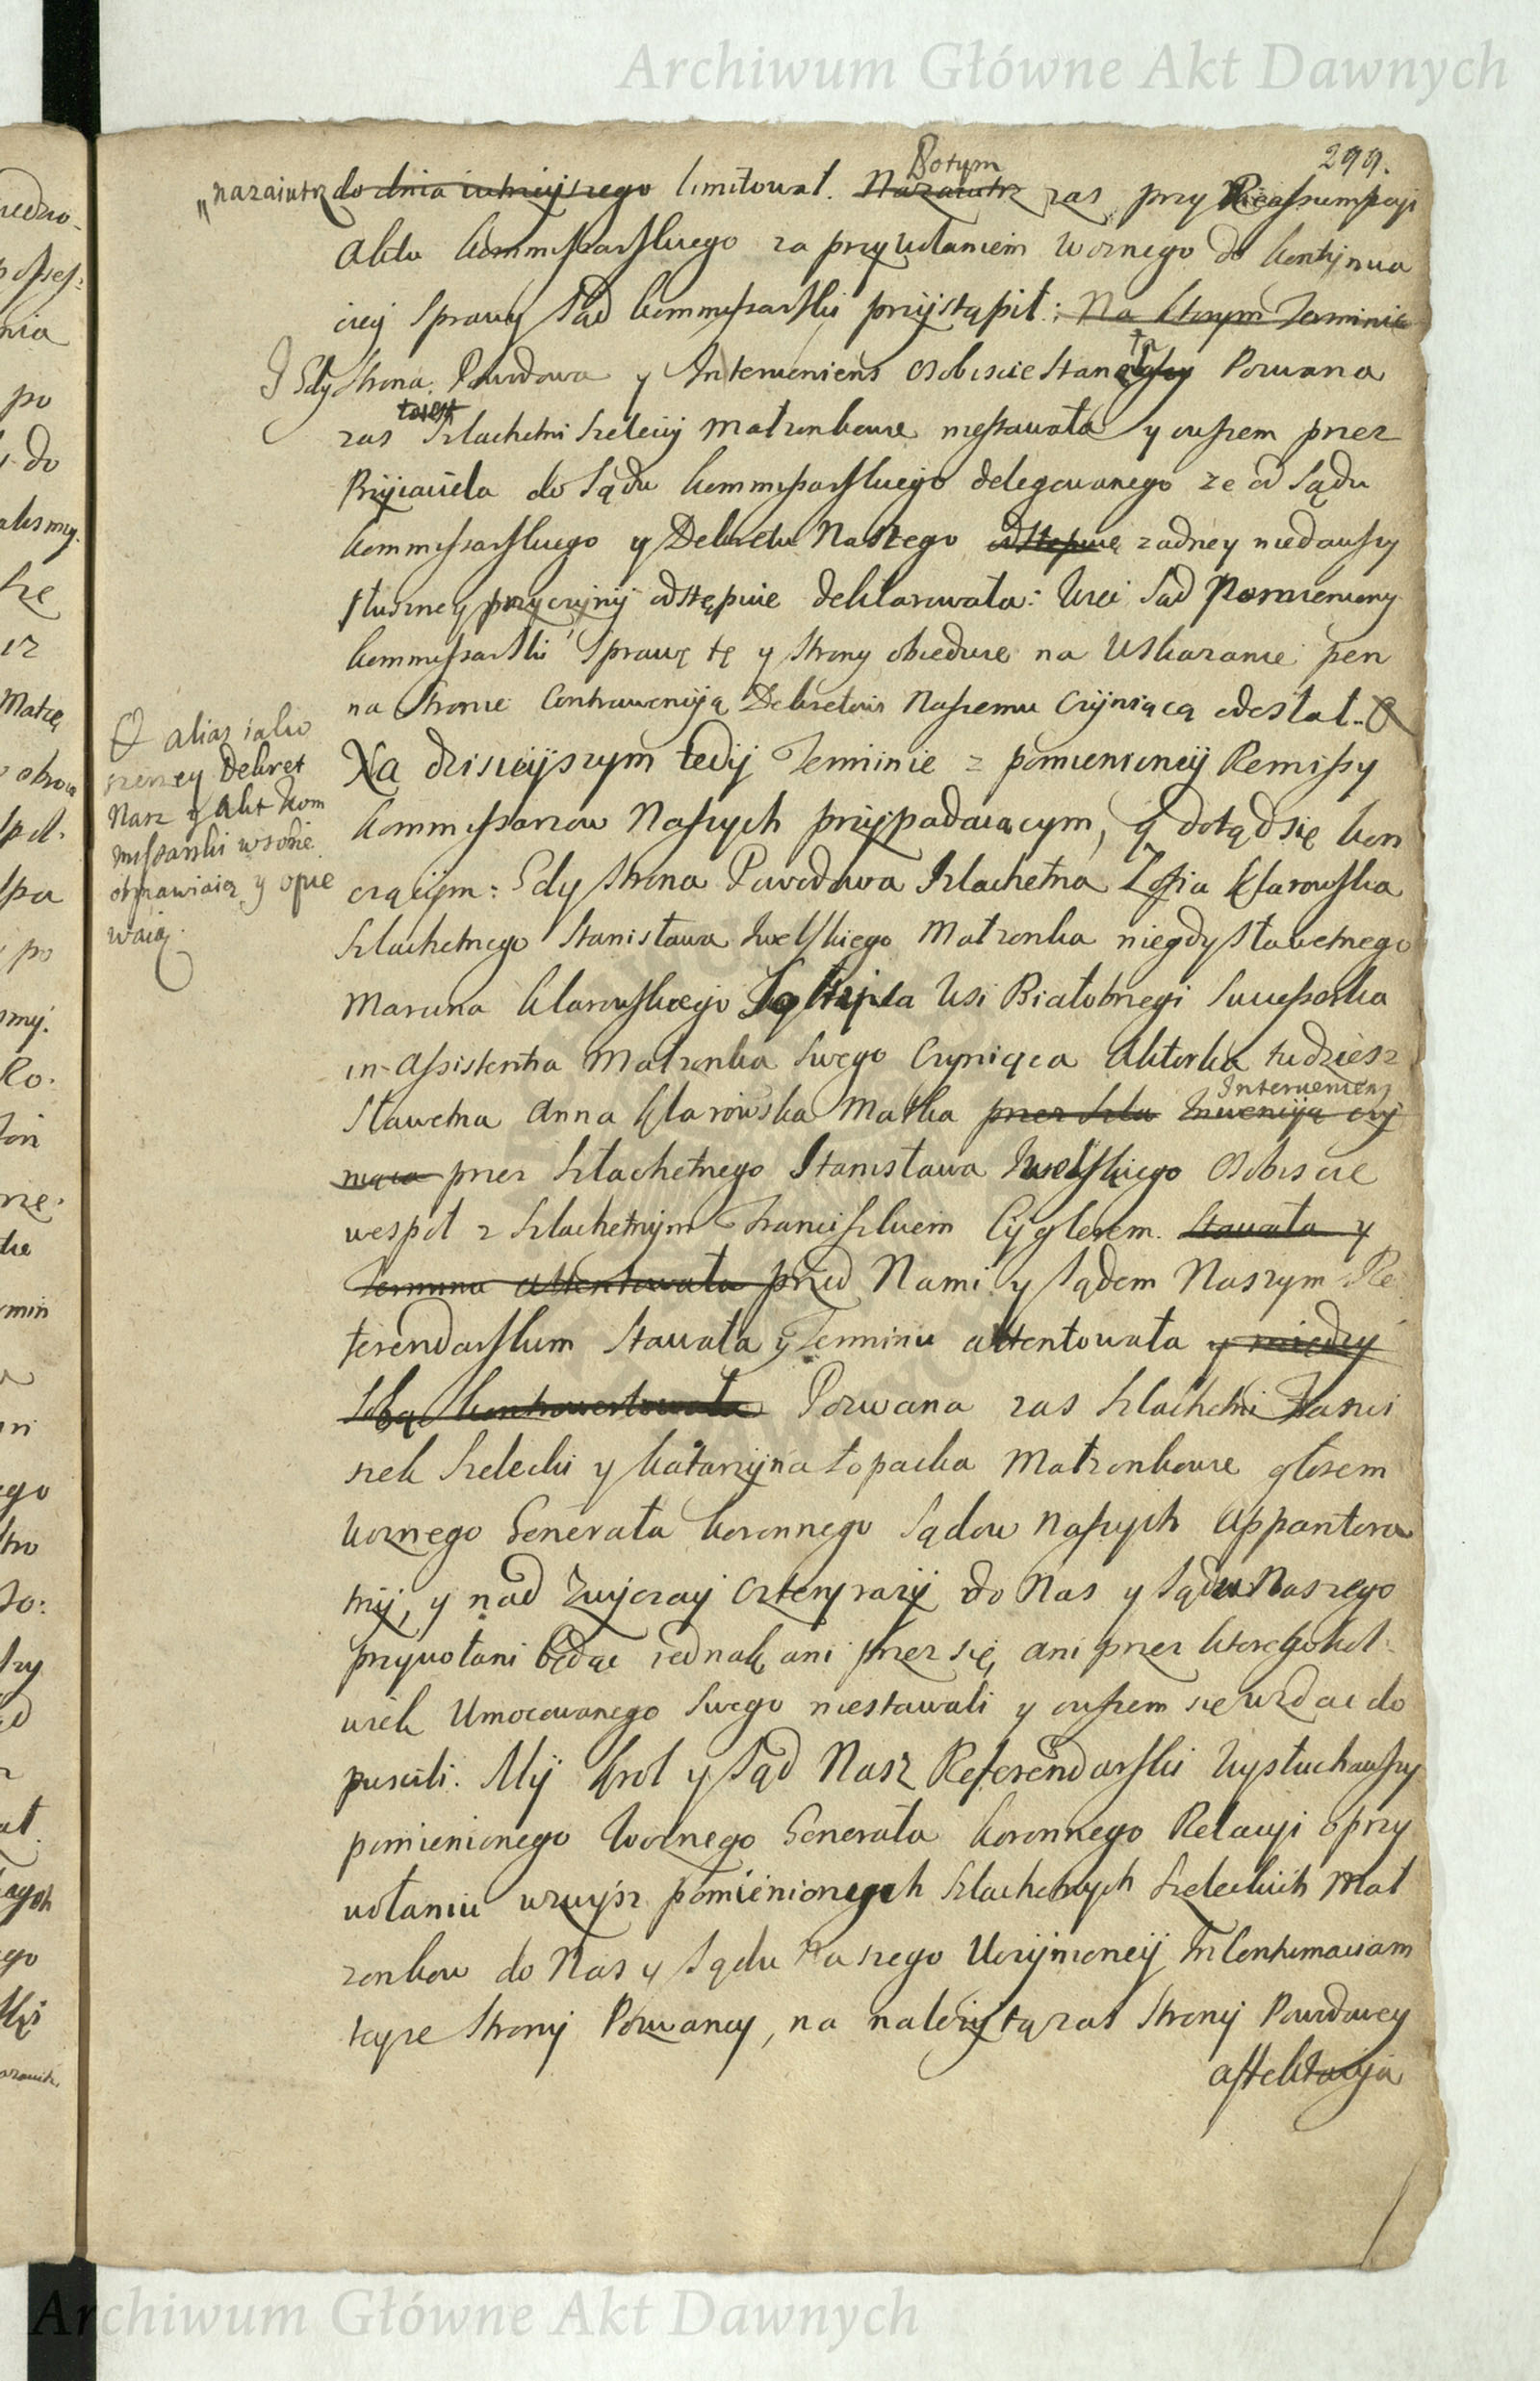 Archiwum Główne Akt Dawnych
299.
Potym
"nazaiutrz do dnia iutrzeyszego limitował. Nazaiutrz zas przy Reassumpcyi
Aktu Kommissarskiego za przywołaniem Woznego do kontynua
cyey Sprawy Sąd Kommissarski przystąpił: Na ktorym Terminie
Gdy Strona Powodowa y Interveniens osobiscie Stanęła Pozwana
toiest
zas Szlachetni Szeleccy Małzonkowie niestawała y owszem przez
Przyiaciela do Sądu Kommissarskiego delegowanego ze od Sądu
Kommissarskiego y Dekretu Naszego odstępuię zadney niedawszy
słuszney przyczyny odstępuie deklarowała: Więc Sąd Pomieniony
Kommissarski Sprawę tę y Strony obiedwie na Wskazanie pen
na Stronie Contrawencyją Dekretowi Naszemu Czyniącą odesłał.
alias iako
szerzey Dekret
Nasz y Akt Kom
missarski w sobie
obmawiaią y opie
waią.
Na dzisieyszym tedy Terminie z pomienioney Remissy
Kommissarzow Naszych przypadaiącym, y dotąd się kon
czącym: Gdy Strona Powodowa Szlachetna Zofia Klarowska
Szlachetnego Stanisława Małzonka niegdy Sławetnego
Marcina Klarowskiego Wsi Białobrzegi Sukcessorka
in Assistentia Małzonka Swego Czyniąca Aktorka tudziesz
Interveniens
Sławetna Anna Klarowska Matka przez Szla czy
niąca przez Szlachetnego Stanisława Osobiscie
wespoł z Szlachetnym Franciszkiem Cyglerem. Stawała y
Terminu attentowała przed Nami y Sądem Naszym Re
ferendarskim Stawała y Terminu attentowała y między
Sobą kontrowertowała Pozwana zas Szlachetni Franci
szek Szelecki y Katarzyna Łopacka Małzonkowie głosem
Woznego Generała Koronnego Sądow Naszych Apparitora
trzy, y nad Zwyczay cztery razy do Nas y Sądu Naszego
przywołani będąc iednak ani przez się, ani przez ktoregokol
wiek Umocowanego Swego niestawali y owszem się wzdać do
puscili. My Krol y Sąd Nasz Referendarski Wysłuchawszy
pomienionego Woznego Generała Koronnego Relacyi o przy
wołaniu wzwysz pomienionych Szlachetnych Szeleckich Mał
zonkow do Nas y Sądu Naszego Uczynioney In Contumaciam
teyze Strony Pozwaney, na nalezytą zas Strony Powodowey
affektacyja
Archiwum Główne Akt Dawnych